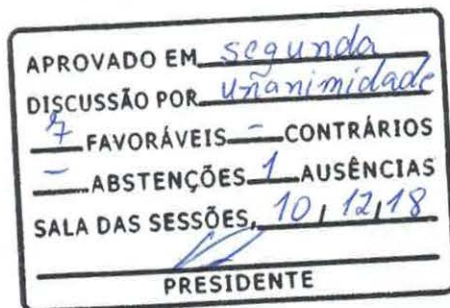 APROVADO EM segunda
DISCUSSÃO POR unanimidade
7 FAVORÁVEIS - CONTRÁRIOS
- ABSTENÇÕES 1 AUSÊNCIAS
SALA DAS SESSÕES, 10, 12, 18
PRESIDENTE